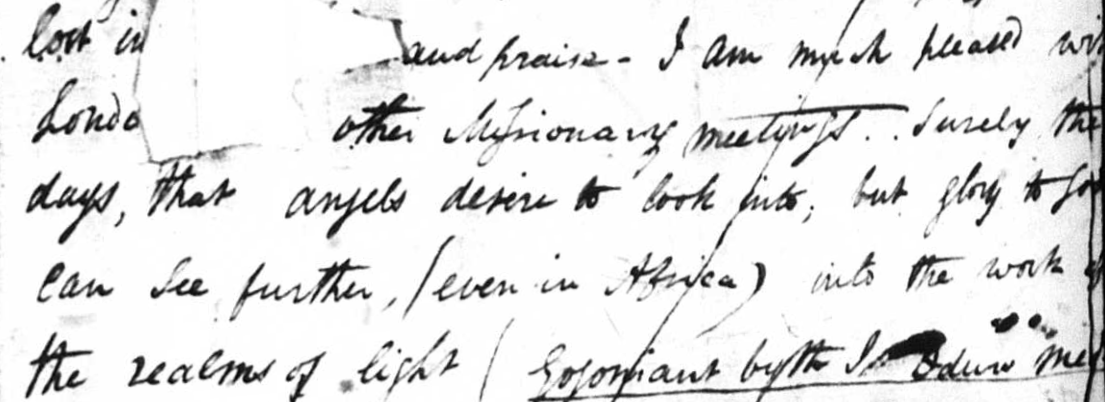 lost in and praise - I am much pleased
other Missionary meetings . . Surely the
days, that angels desire to look into; but glory to
can see further, (even in Africa) into the work
the realms of light ( Gogoniant byth I'r